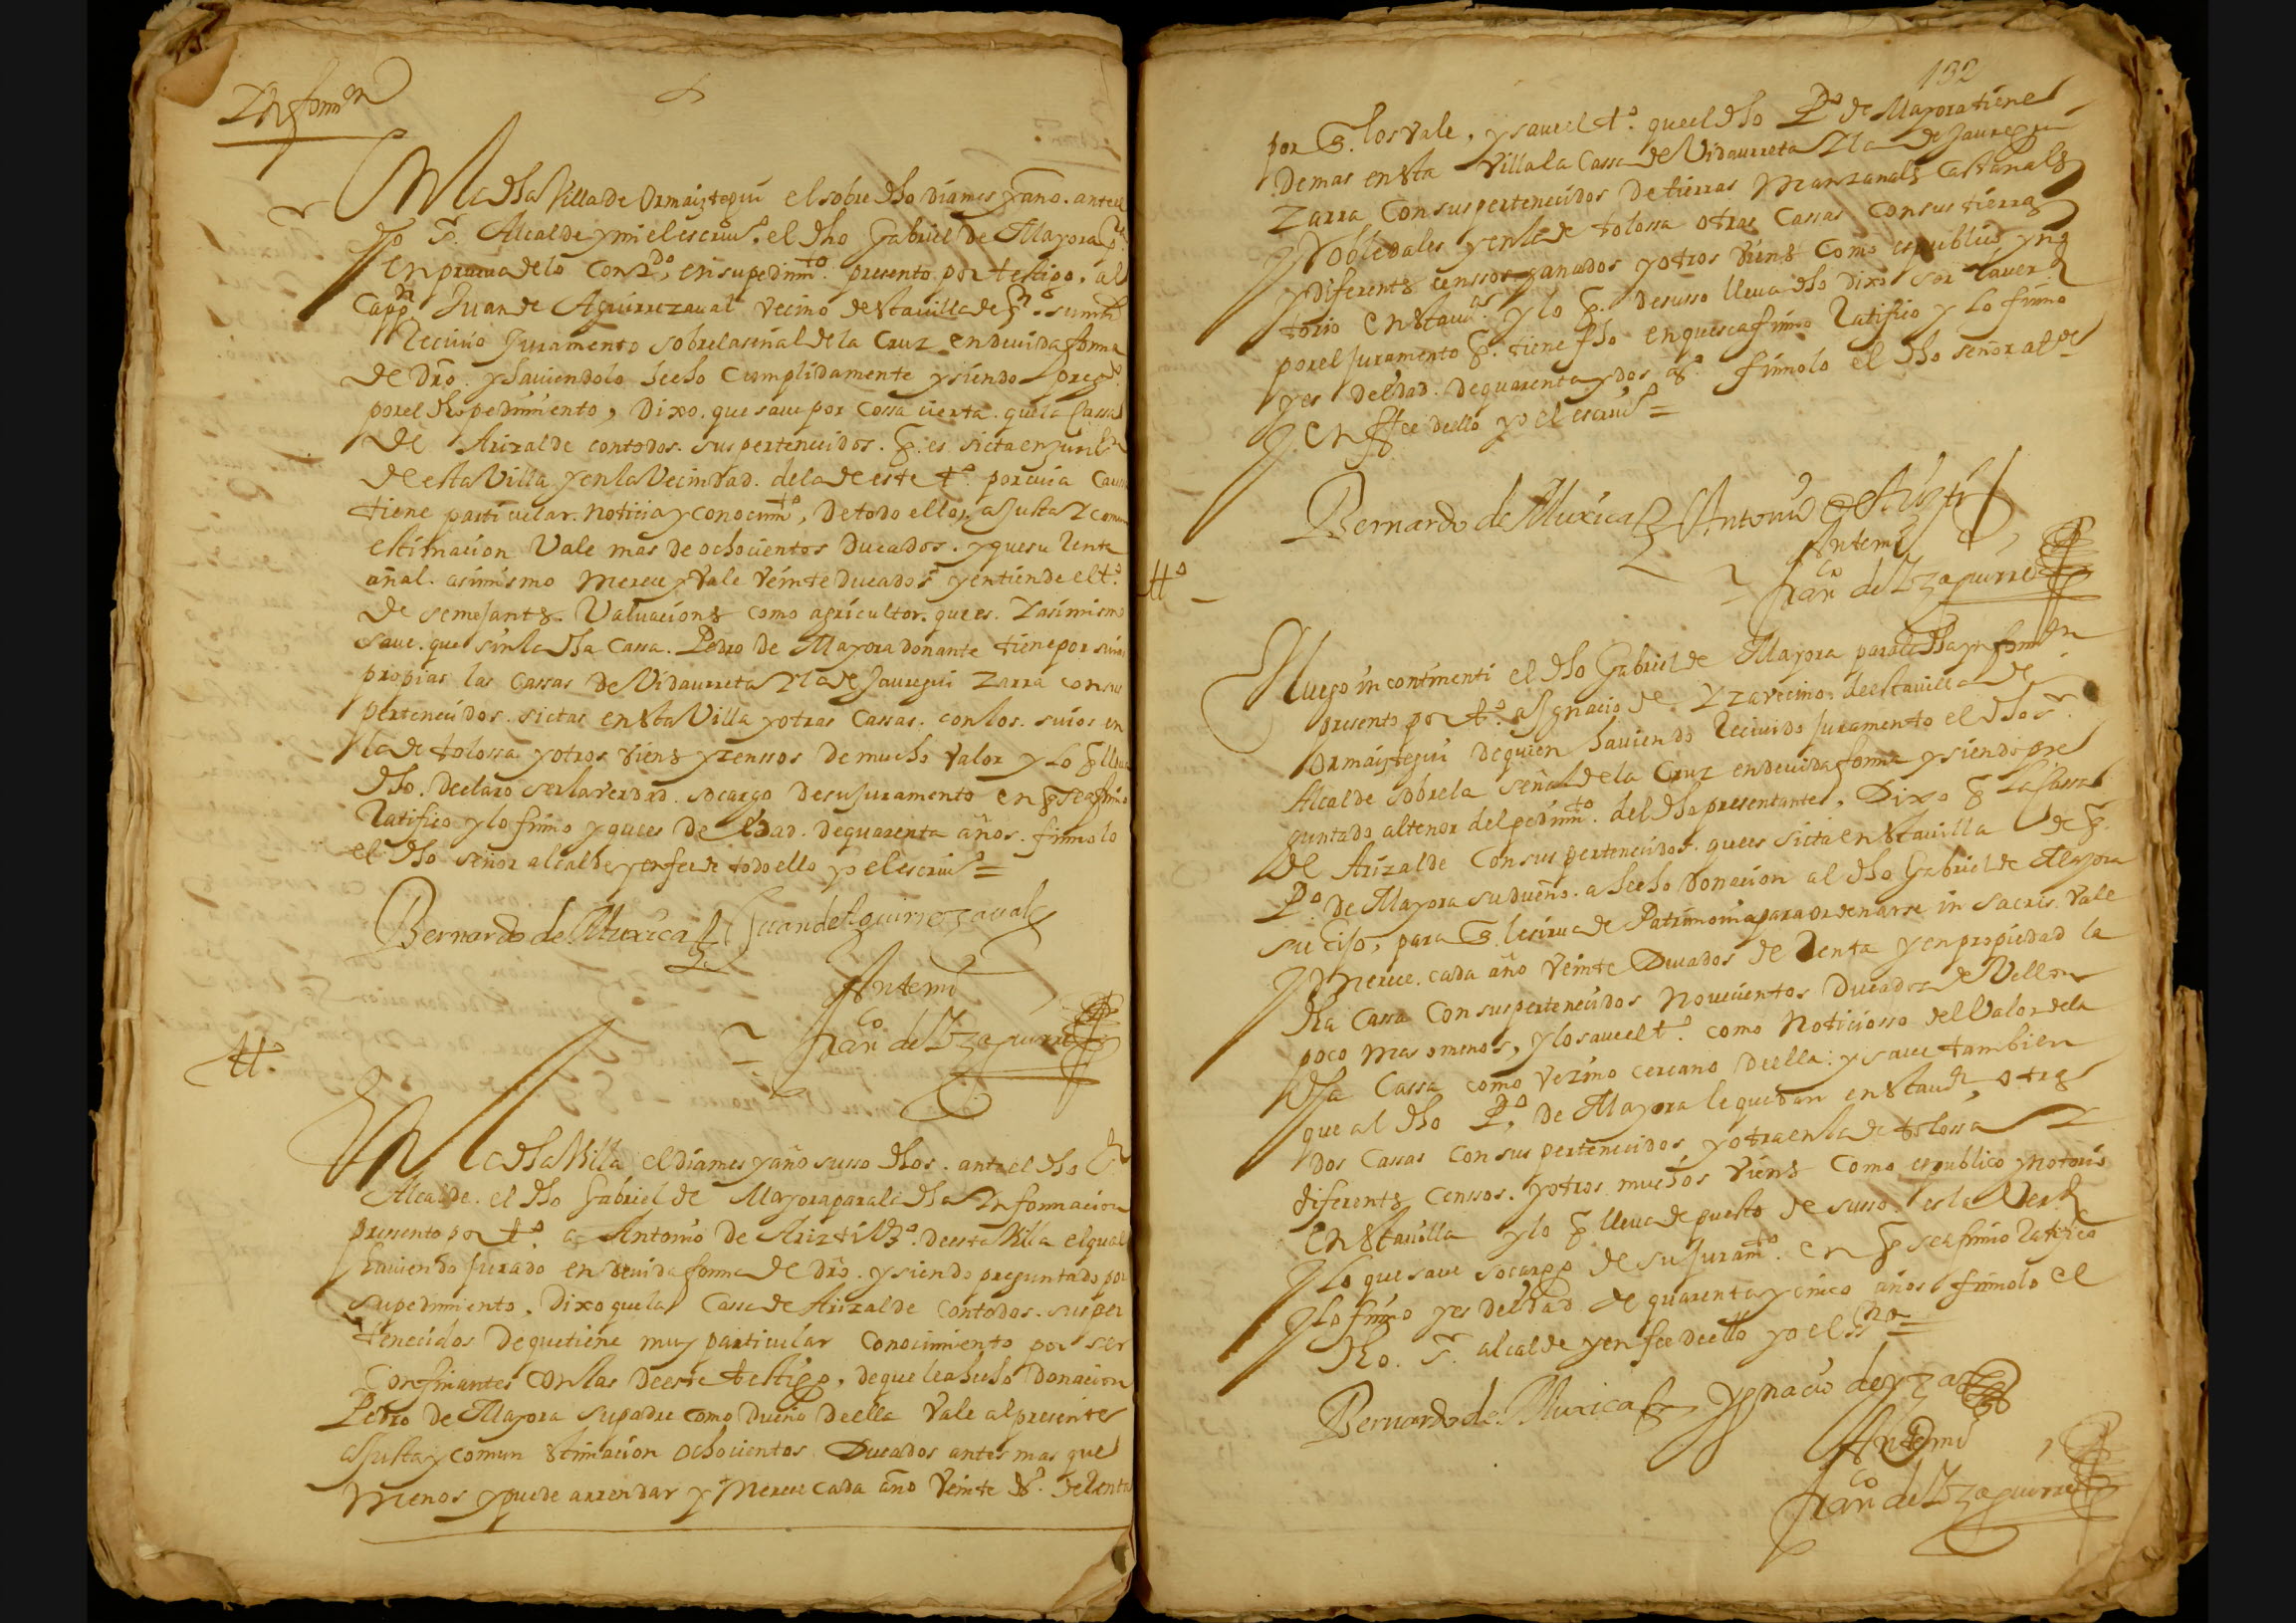 Ynformon
En la dha Villa de Ormaiztegui el sobre dho dia mes y año. ante el
dho Sr. Alcalde y mi el escriuo. el dho Gabriel de Mayora
en prueua de lo contdo, en su pedimto. presento por testigo, al
Cappn Juan de Aguirrezaual vecino desta villa de
Reciuio Juramento sobre la señal de la Cruz en deuida forma
de dro. y hauiendolo hecho cumplidamente y siendo pregdo.
por el dho pedimiento, Dixo. que saue por cossa cierta. que la Cassa
de Arizalde con todos. sus pertenecidos. q. es. sicta en
de esta Villa y en la Vecindad. de la de este to. por cuia Caussa
tiene particular. noticia y conocimto, de todo ello, a justa y comun
estimacion Vale mas de ochocientos Ducados. y que su Renta
añal. asimismo merece y Vale veinte Ducados y entiende el to.
de semejantes. Valuaciones como agricultor. que es. Y asimismo
saue. que sin la dha Cassa. Pedro de Mayora donante tiene por suias
propias las Cassas de Vidaurreta y la de Jauregui Zarra con sus
pertenecidos. sictas en esta Villa y otras Cassas. con los. suios en
la de tolossa y otros vienes y zenssos de mucho valor y lo q lleua
dho. Declaro ser la verdad. socargo de su juramento en q se afirmo
Ratifico y lo firmo y que es de Edad. de quarenta años. firmolo
el dho señor alcalde y en fee de todo ello yo el escriuo =
Bernardo de Muxica Juan de Aguirrezaual
Ante mi
Franco de Yzaguirre
to.
En la dha Villa el dia mes y año susso dhos. ante el dho Sr
Alcalde. el dho Gabriel de Mayora para la dha Ynformacion
presento por to. a Antonio de Arizti Vo. de esta Villa el qual
hauiendo jurado en deuida forma de dro. y siendo preguntado por
su pedimiento. Dixo que la Cassa de Arizalde con todos. sus per
tenecidos de que tiene muy particular conocimiento por ser
Confinantes con las de este testigo, de que le a hecho Donacion
Pedro de Mayora su padre como Dueño de ella Vale al presente
a justa y comun estimacion ochocientos Ducados antes mas que
menos y puede arrendar y merece cada año Veinte ds. de Renta
132
por q. los vale, y saue el to. que el dho Po de Mayora tiene
demas en esta Villa la Cassa de Vidaurreta y la de Jauregui
Zarra con sus pertenecidos de tierras Manzanales Castañales
y Robledales y en la de tolossa otras Cassas con sus tierras
y diferentes censsos ganados y otros vienes como es publico y no
torio en esta va. y lo q. de susso lleua dho dixo ser la verd
por el Juramento q. tiene fho en que se afirmo Ratifico y lo firmo
y es de edad. de quarenta y dos as. firmolo el dho señor alde
y en fee de ello yo el escriuo =
Bernardo de Muxica Antonio de Arizti
Ante mi
Franco de Yzaguirre
to
Luego incontinenti el dho Gabriel de Mayora para la dha ynformn
presento por to. a Ignacio de Yza vecino. de esta villa de
Ormaiztegui de quien hauiendo Reciuido juramento el dho Sr.
Alcalde sobre la señal de la Cruz en deuida forma y siendo pre
guntado al tenor del pedimto. del dho presentante, Dixo q la Cassa
de Arizalde con sus pertenecidos. que es sicta en esta villa de q.
Po. de Mayora su dueño. a hecho Donacion al dho Gabriel de Mayora
su hijo, para q. le sirua de Patrimonio para ordenarse in sacris. Vale
y merece. cada año Veinte Ducados de Renta y en propiedad la
dha Cassa con sus pertenecidos nouecientos Ducados de Vellon
poco mas o menos, y lo saue el to. como noticiosso del Valor de la
dha Cassa como vezino cercano de ella: y saue tambien
que al dho Po. de Mayora le quedan en esta va, otras
dos Cassas con sus pertenecidos y otra en la de tolossa y
diferentes censsos. y otros muchos vienes como es publico y notorio
en esta villa y lo q lleua depuesto de susso. es la Verd
y lo que saue socargo de su juramto. en q se afirmo Ratifico
y lo firmo y es de edad de quarenta y cinco años firmolo el
dho. Sr. alcalde y en fee de ello yo el ssno =
Bernardo de Muxica Ygnacio de yza
Ante mi
Franco de Yzaguirre